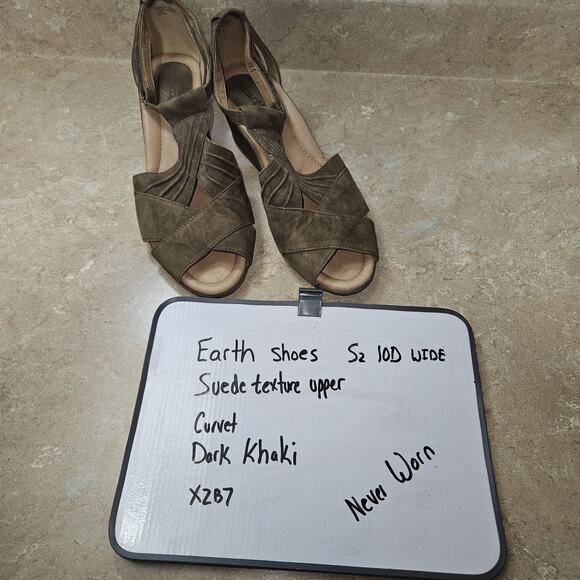 Earth shoes Sz 10D WIDE
Suede texture upper
Curvet
Dark Khaki
X2B7
Never Worn